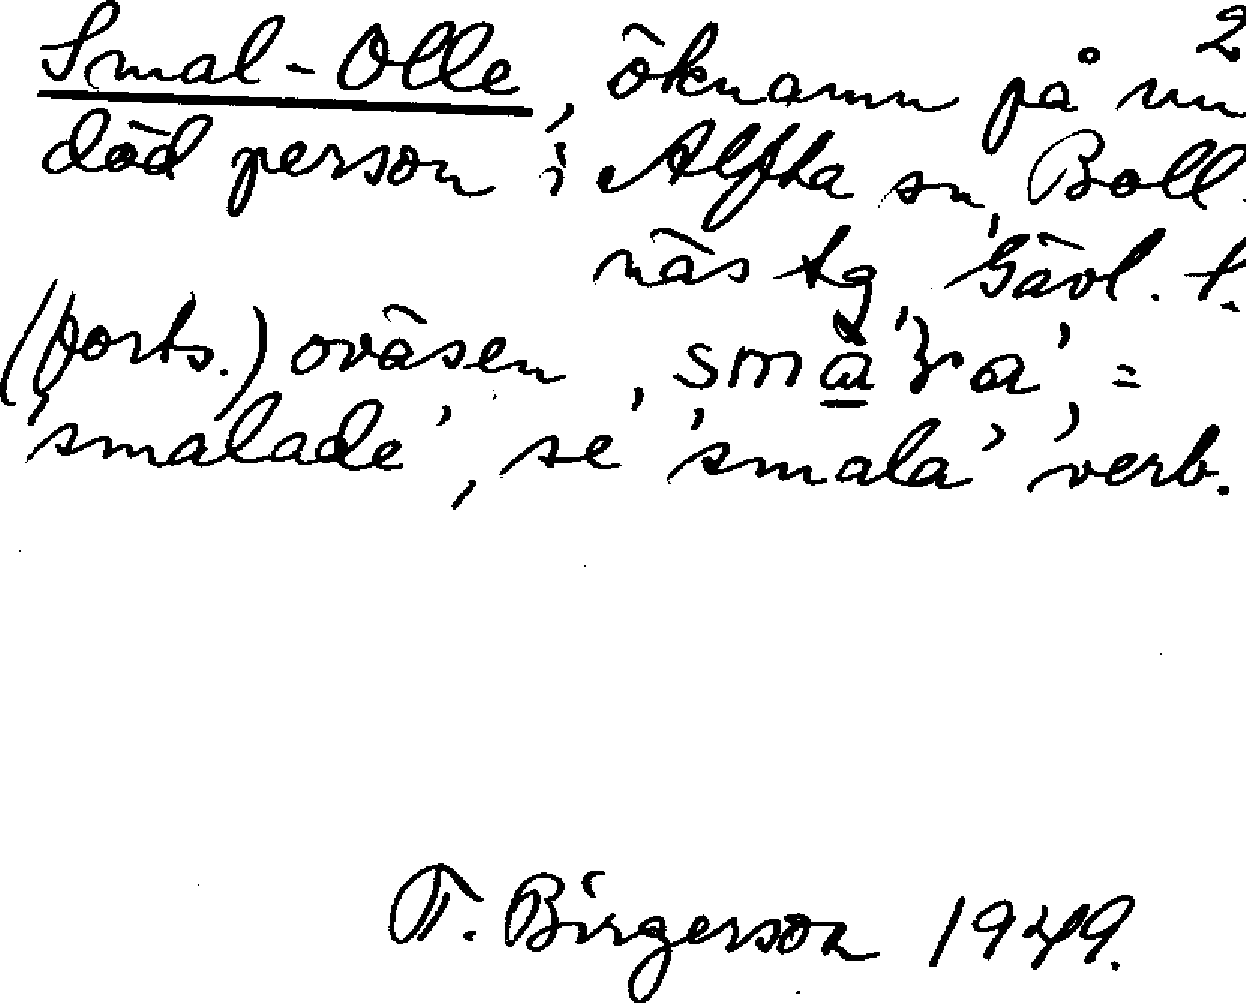 2
Smal-Olle, öknamn på nu
död person i Alfta sn, Boll-
näs tg, Gävl. l.
(forts.) oväsen,
'smalade', se 'smala' verb.
T. Birgerson 1949.